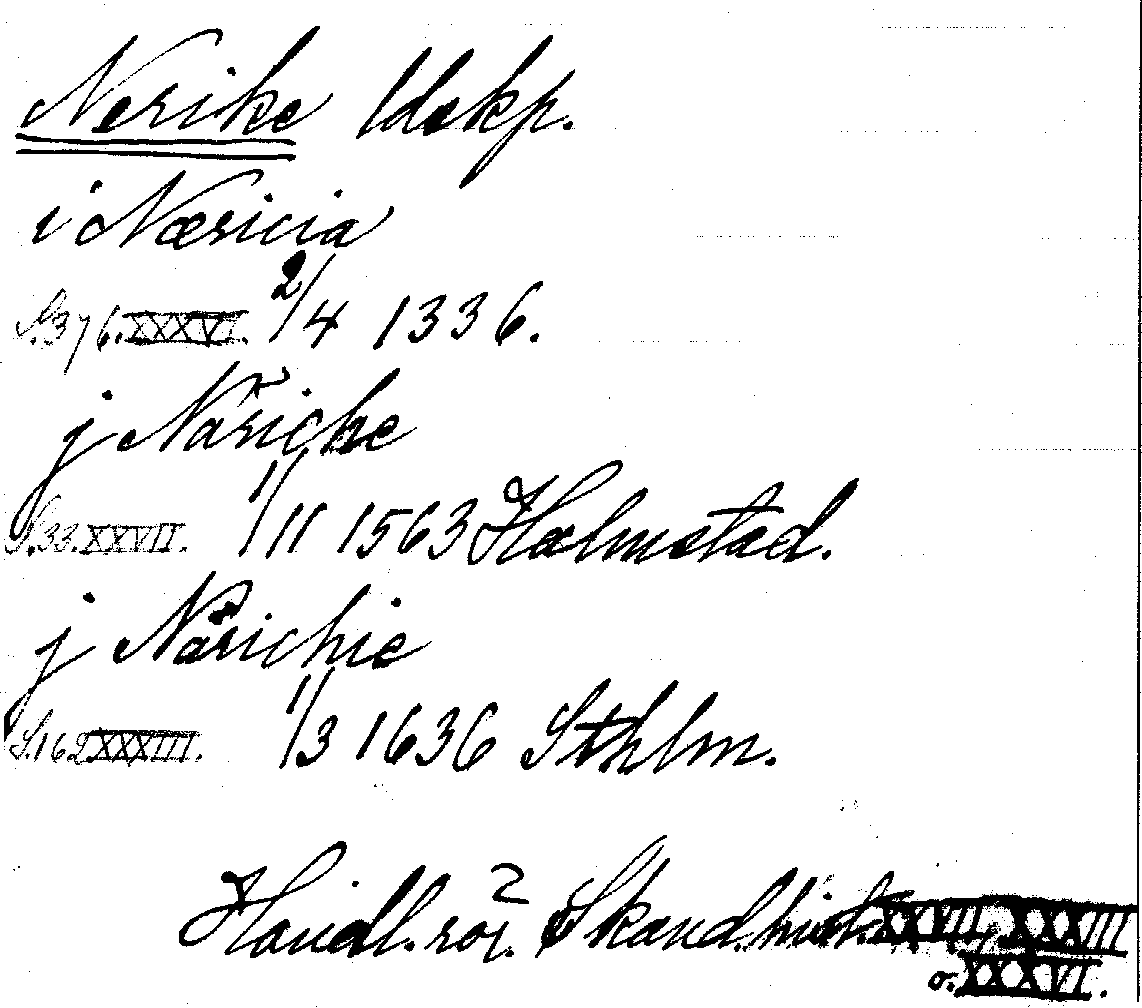 Nerike ldskp.
i Næricia
S.376.XXXVI. 2/4 1336.
j Näriche
S.33.XXVII. 1/11 1563 Halmstad.
j Närichie
S.162 XXXIII. 1/3 1636 Sthlm.
Handl. rör. Skand. hist. XXVII, XXXIII
o. XXXVI.